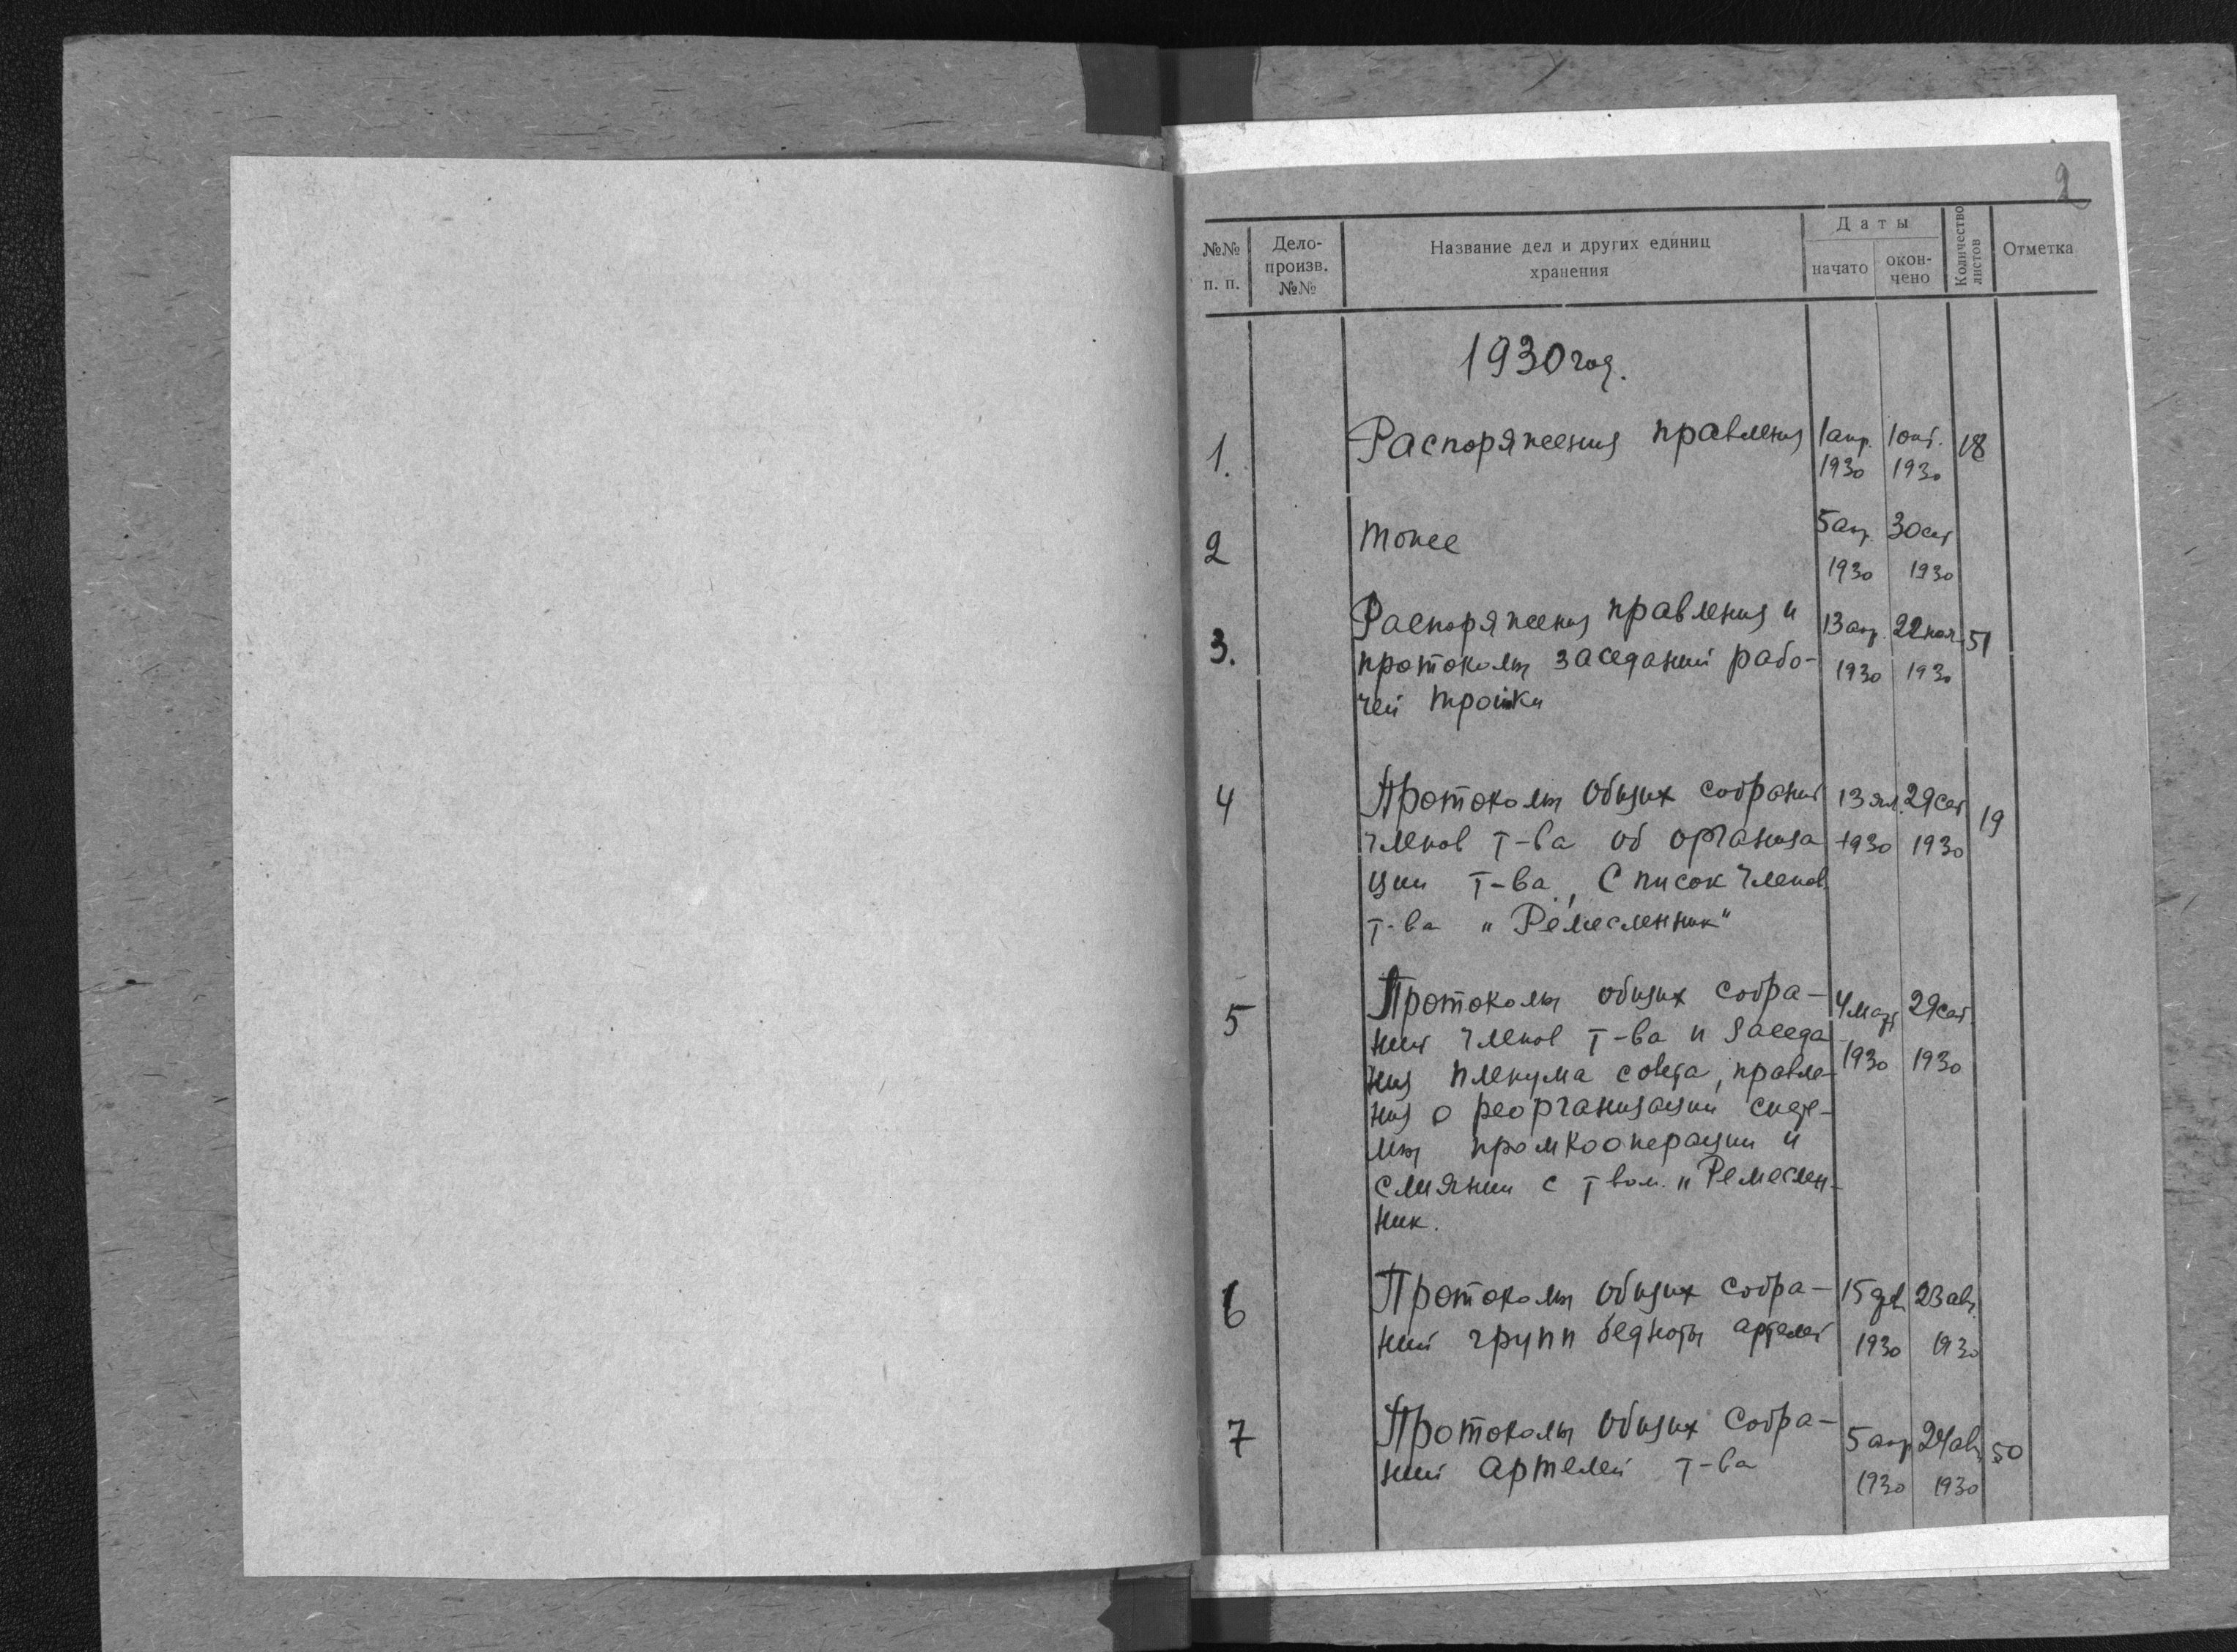 2
№№ п. п.
Дело-произв. №№
Название дел и других единиц хранения
Даты
начато
окончено
Количество листов
Отметка
1930 год.
1. Распоряжения правления 1 апр. 1 окт. 18
1930 1930
2 тоже 5 апр. 30 сент
1930 1930
3. Распоряжения правления и 13 апр. 22 ноя 51
протоколы заседаний рабо- 1930 1930
чей тройки
4 Протоколы общих собраний 13 янв. 29 сент 19
членов т-ва об организа 1930 1930
ции т-ва, Список членов
т-ва "Ремесленник"
5 Протоколы общих собра- 4 март 29 сент.
ний членов т-ва и заседа 1930 1930
ния пленума совета, правле-
ния о реорганизации систе-
мы промкооперации и
слиянии с т вом. "Ремеслен-
ник.
6 Протоколы общих собра- 15 фев 23 авг.
ний групп бедноты артелей 1930 1930
7 Протоколы общих собра- 5 апр 24 авг 50
ний артелей т-ва 1930 1930